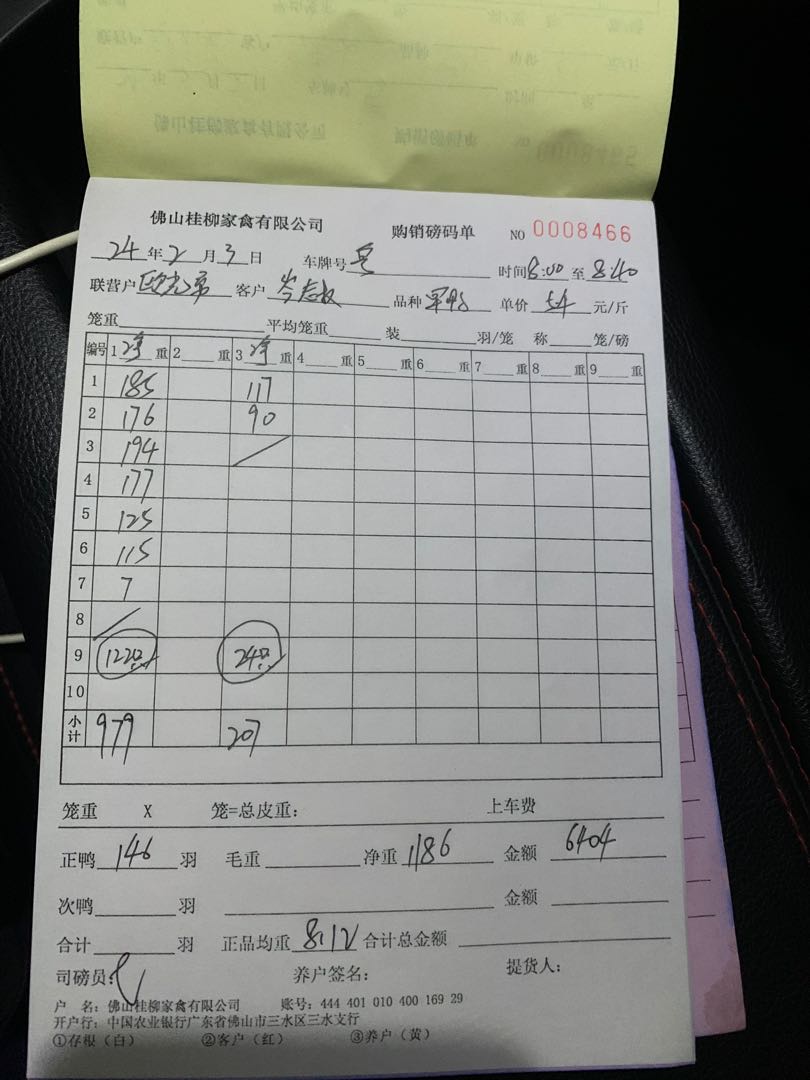 佛山桂柳家禽有限公司 购销磅码单 NO 0008466
24年2月3日 车牌号 时间8:00至8:40
联营户 客户 品种 单价 54 元/斤
笼重 平均笼重 装 羽/笼 称 笼/磅
编号 1 净 重 2 重 3 净 重 4 重 5 重 6 重 7 重 8 重 9 重
1 185 117
2 176 90
3 194
4 177
5 125
6 115
7 7
8
9 122只 24只
10
小计 979 207
笼重 X 笼=总皮重: 上车费
正鸭 146 羽 毛重 净重 1186 金额 6404
次鸭 羽 金额
合计 羽 正品均重 8.12 合计总金额
司磅员: 养户签名: 提货人:
户 名: 佛山桂柳家禽有限公司 账号: 444 401 010 400 169 29
开户行: 中国农业银行广东省佛山市三水区三水支行
①存根(白) ②客户(红) ③养户(黄)